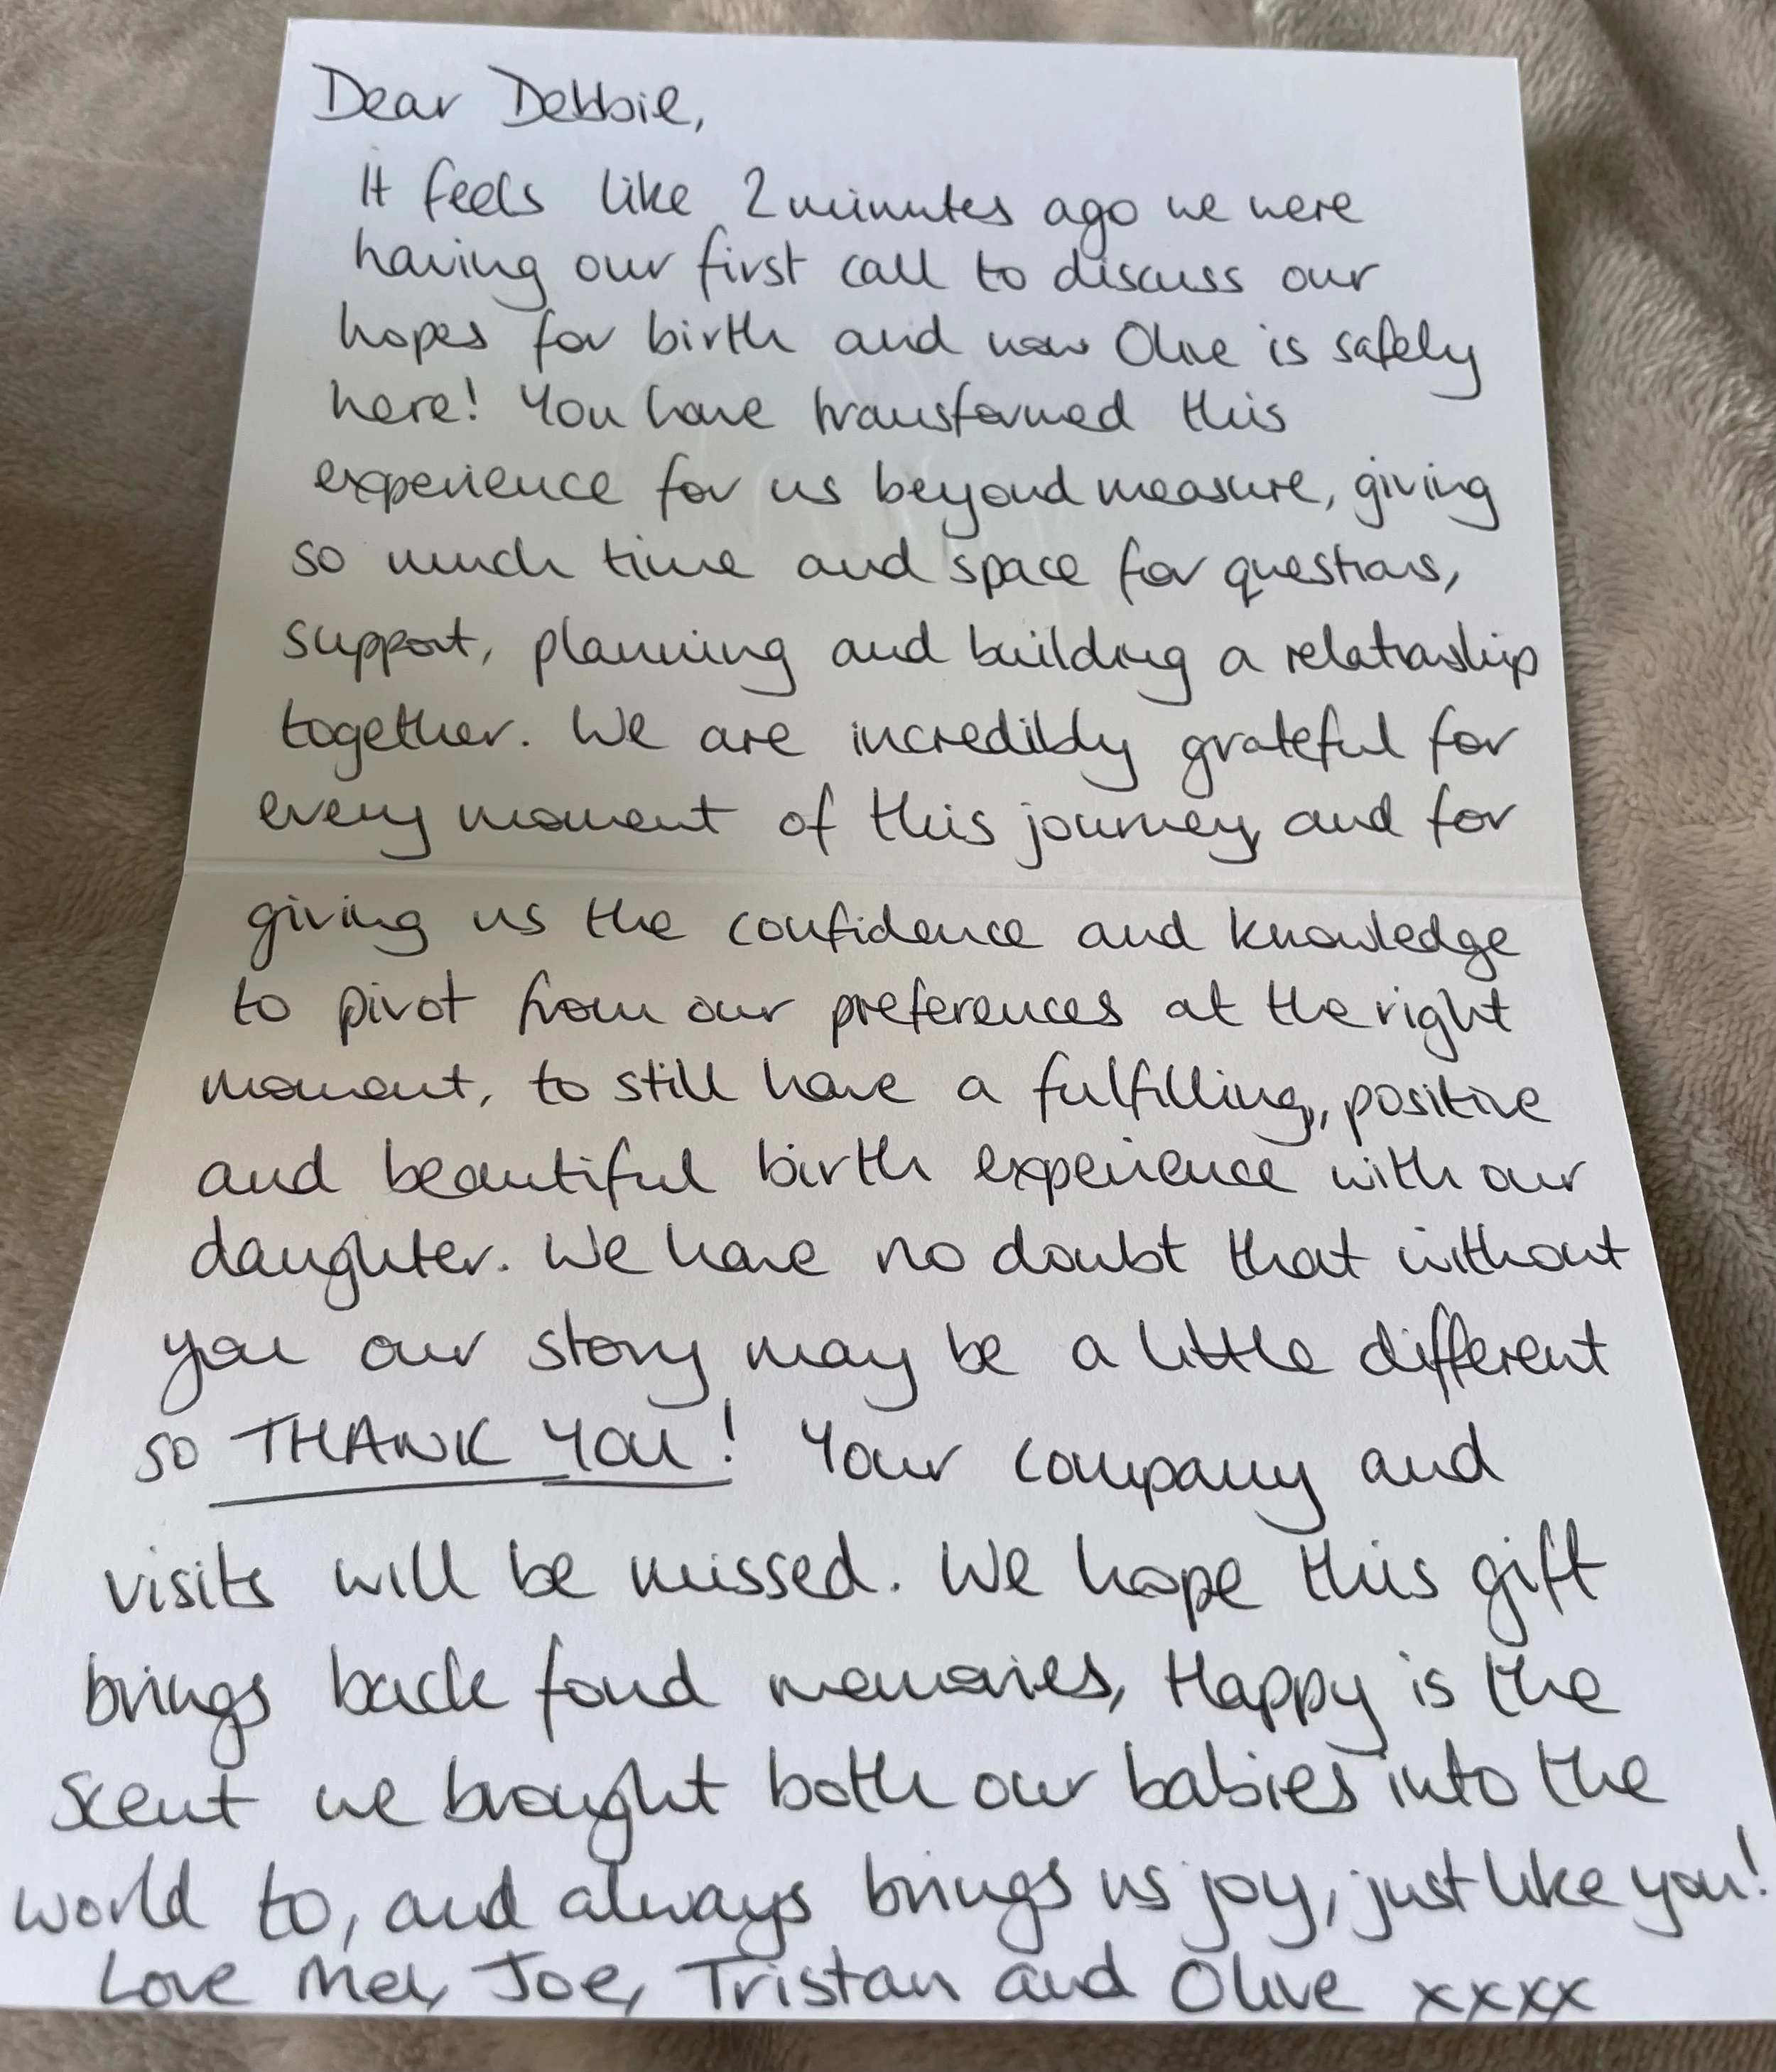 Dear Debbie,
It feels like 2 minutes ago we were
having our first call to discuss our
hopes for birth and now Olive is safely
here! You have transformed this
experience for us beyond measure, giving
so much time and space for questions,
support, planning and building a relationship
together. We are incredibly grateful for
every moment of this journey, and for
giving us the confidence and knowledge
to pivot from our preferences at the right
moment, to still have a fulfilling, positive
and beautiful birth experience with our
daughter. We have no doubt that without
you our story may be a little different
so THANK YOU! Your company and
visits will be missed. We hope this gift
brings back fond memories, Happy is the
scent we brought both our babies into the
world to, and always brings us joy, just like you!
Love Mel, Joe, Tristan and Olive xxxx